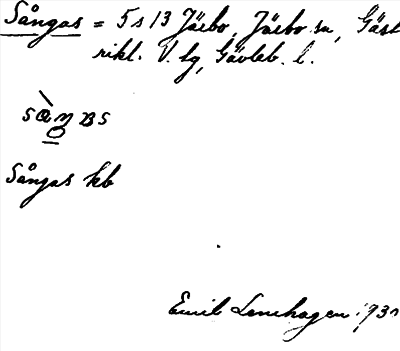 Sångas = 5 s 13 Järbo, Järbo sn, Gäst
rikl. V. lg, Gävleb. l.
Sångas kb
Emil Lenhagen 193